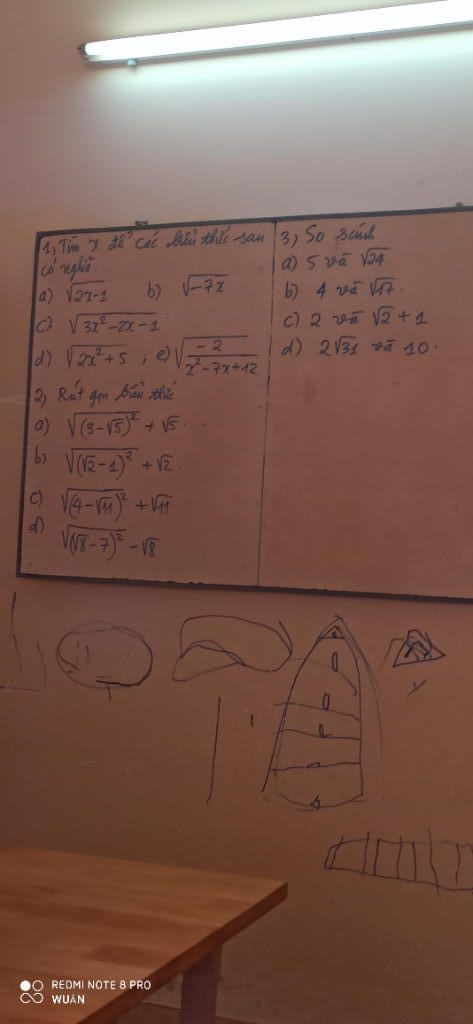 1, Tìm x để các biểu thức sau
có nghĩa.
a) √(2x-1) b) √(-7x)
c) √(3x²-2x-1)
d) √(2x²+5) ; e) √(-2/(x²-7x+12))
2, Rút gọn biểu thức
a) √((3-√5)²) + √5 . .
b) √((√2-1)²) + √2.
c) √((4-√11)²) + √11
d) √((√8-7)²) - √8
3, So sánh
a) 5 và √24
b) 4 và √17.
c) 2 và √2 + 1
d) 2√31 và 10.
REDMI NOTE 8 PRO
WUÂN